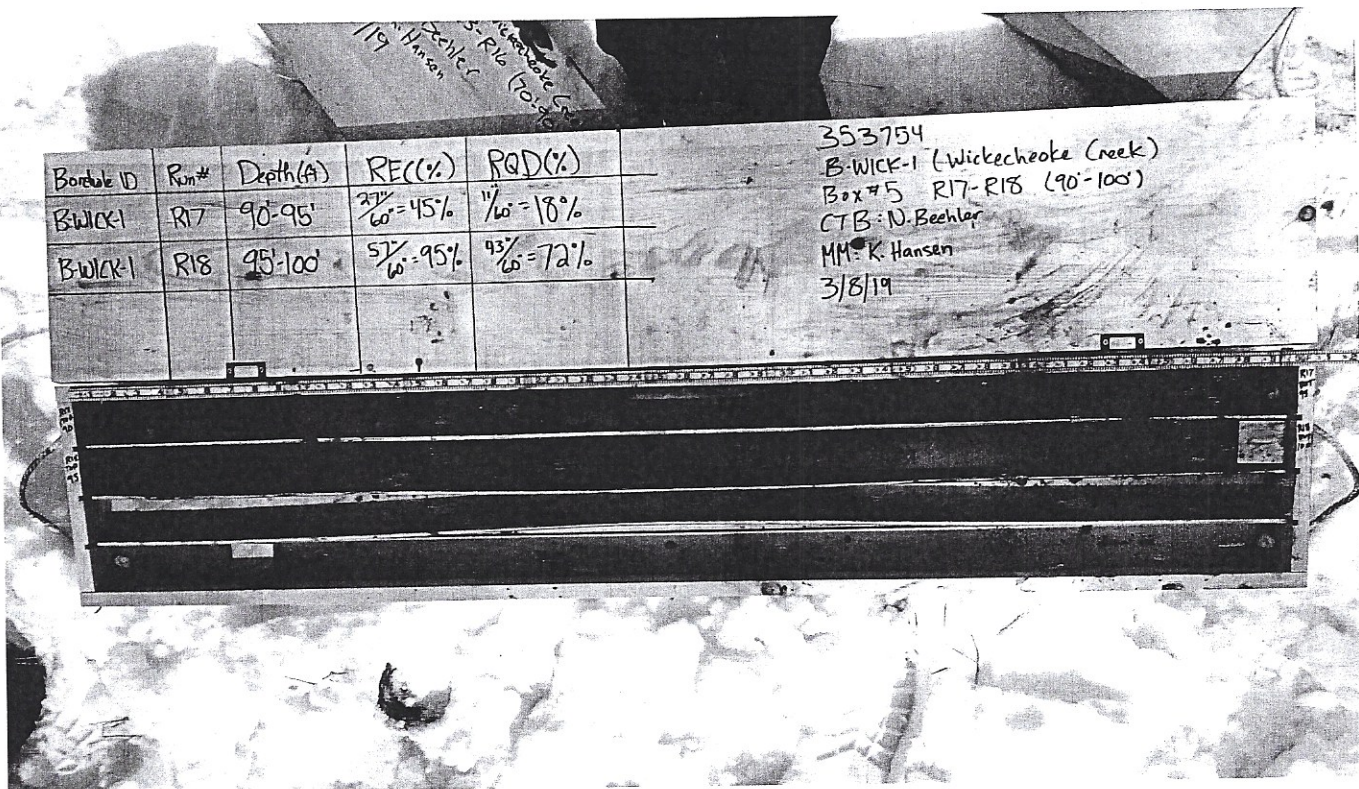 Wickecheoke Cree
5-R16 (70-90
Beehler
Hansen
/19
Borehole ID Run# Depth(ft) REC(%) RQD(%)
B-WICK-1 R17 90'-95' 27"/60" = 45% 11"/60" = 18%
B-WICK-1 R18 95'-100' 57"/60" = 95% 43"/60" = 72%
353754
B-WICK-1 (Wickecheoke Creek)
Box #5 R17-R18 (90'-100')
CTB: N. Beehler
MM: K. Hansen
3/8/19
R17
R17
90
95